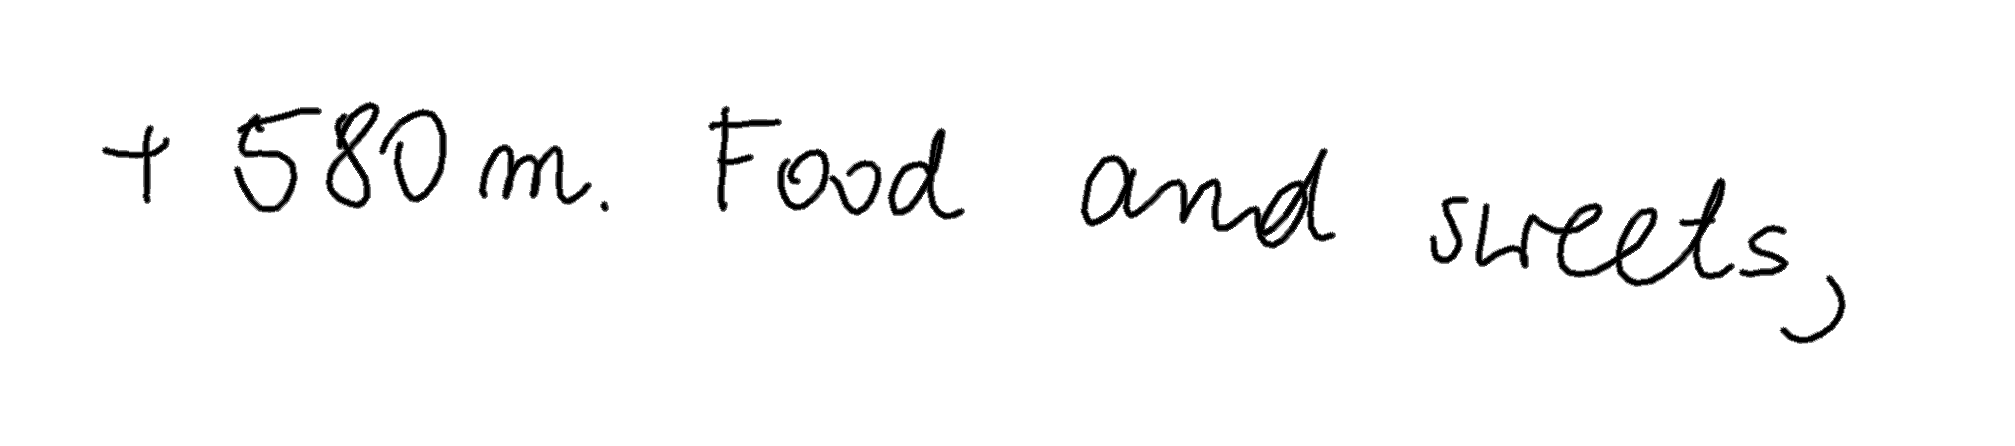 + 580 m. Food and sweets,